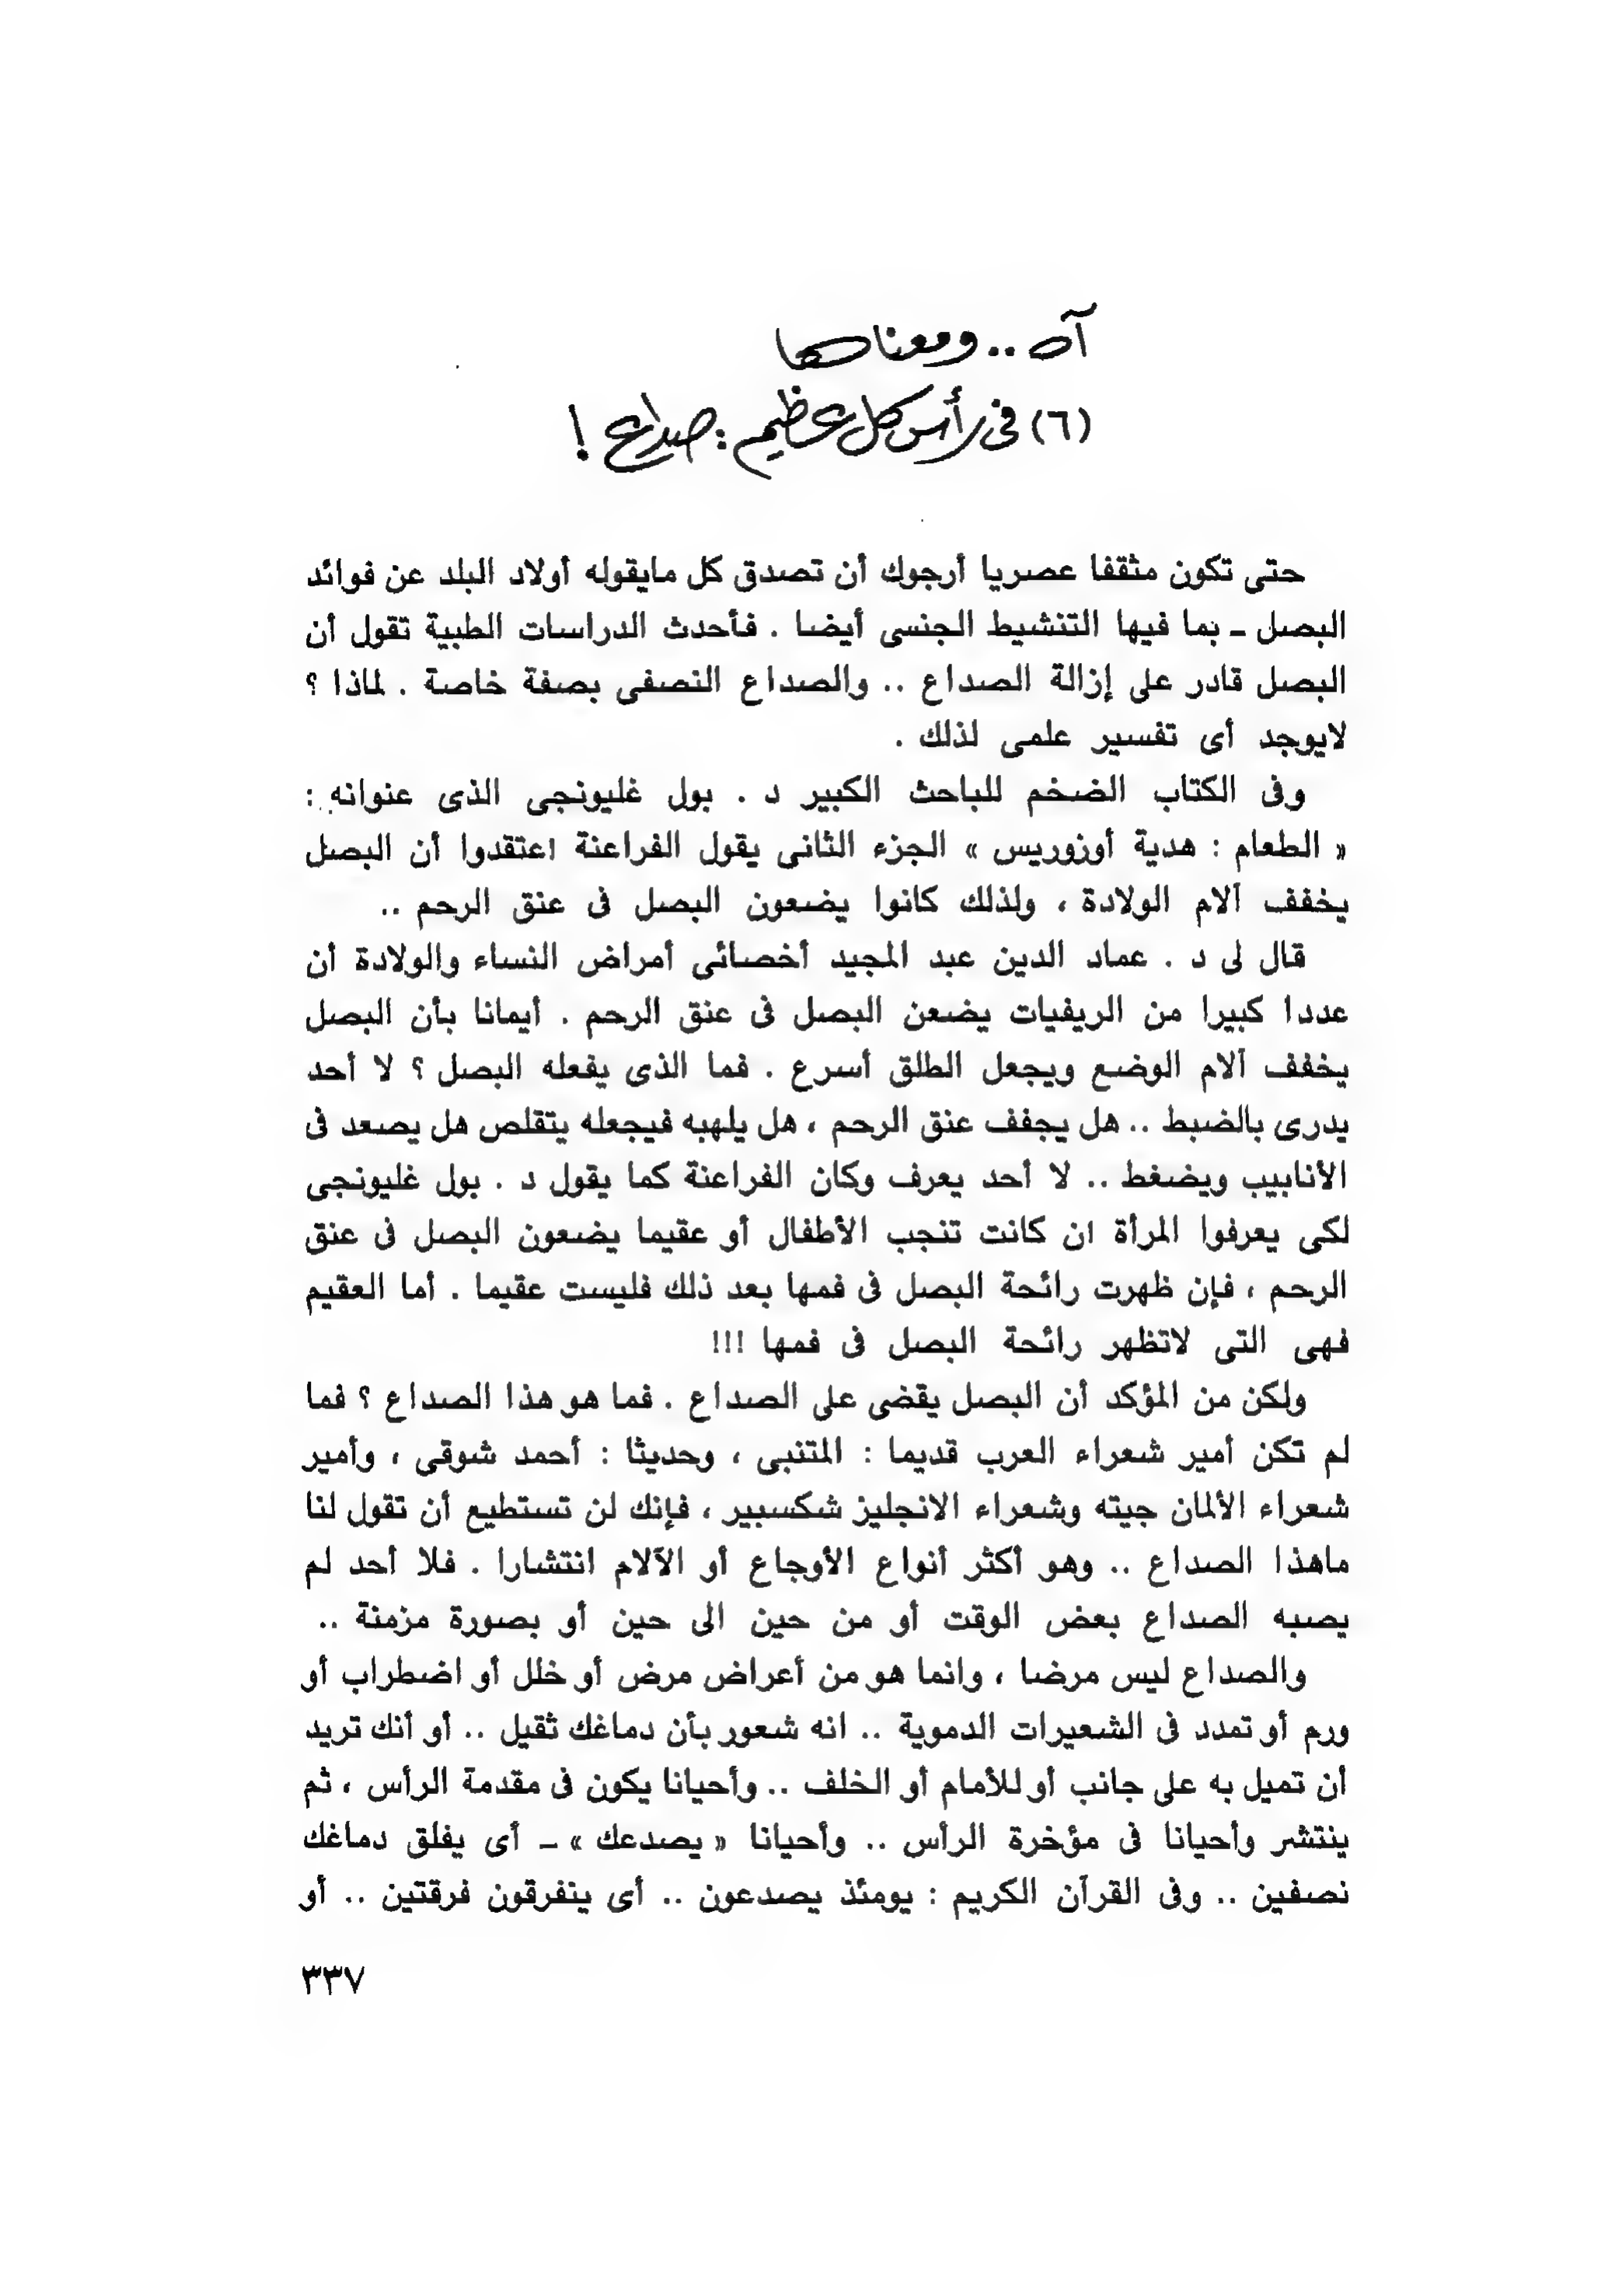 آه .. ومعناها
(٦) فى رأس كل عظيم : صداع !
حتى تكون مثقفا عصريا أرجوك أن تصدق كل مايقوله أولاد البلد عن فوائد
البصل ـ بما فيها التنشيط الجنسى أيضا . فأحدث الدراسات الطبية تقول أن
البصل قادر على إزالة الصداع .. والصداع النصفى بصفة خاصة . لماذا ؟
لايوجد أى تفسير علمى لذلك .
وفى الكتاب الضخم للباحث الكبير د . بول غليونجى الذى عنوانه :
« الطعام : هدية أوزوريس » الجزء الثانى يقول الفراعنة اعتقدوا أن البصل
يخفف آلام الولادة ، ولذلك كانوا يضعون البصل فى عنق الرحم ..
قال لى د . عماد الدين عبد المجيد أخصائى أمراض النساء والولادة أن
عددا كبيرا من الريفيات يضعن البصل فى عنق الرحم . أيمانا بأن البصل
يخفف آلام الوضع ويجعل الطلق أسرع . فما الذى يفعله البصل ؟ لا أحد
يدرى بالضبط .. هل يجفف عنق الرحم ، هل يلهبه فيجعله يتقلص هل يصعد فى
الأنابيب ويضغط .. لا أحد يعرف وكان الفراعنة كما يقول د . بول غليونجى
لكى يعرفوا المرأة ان كانت تنجب الأطفال أو عقيما يضعون البصل فى عنق
الرحم ، فإن ظهرت رائحة البصل فى فمها بعد ذلك فليست عقيما . أما العقيم
فهى التى لاتظهر رائحة البصل فى فمها !!!
ولكن من المؤكد أن البصل يقضى على الصداع . فما هو هذا الصداع ؟ فما
لم تكن أمير شعراء العرب قديما : المتنبى ، وحديثا : أحمد شوقى ، وأمير
شعراء الألمان جيته وشعراء الانجليز شكسبير ، فإنك لن تستطيع أن تقول لنا
ماهذا الصداع .. وهو أكثر أنواع الأوجاع أو الآلام انتشارا . فلا أحد لم
يصبه الصداع بعض الوقت أو من حين الى حين أو بصورة مزمنة ..
والصداع ليس مرضا ، وانما هو من أعراض مرض أو خلل أو اضطراب أو
ورم أو تمدد فى الشعيرات الدموية .. انه شعور بأن دماغك ثقيل .. أو أنك تريد
أن تميل به على جانب أو للأمام أو الخلف .. وأحيانا يكون فى مقدمة الرأس ، ثم
ينتشر وأحيانا فى مؤخرة الرأس .. وأحيانا « يصدعك » ـ أى يفلق دماغك
نصفين .. وفى القرآن الكريم : يومئذ يصدعون .. أى ينفرقون فرقتين .. أو
٣٣٧